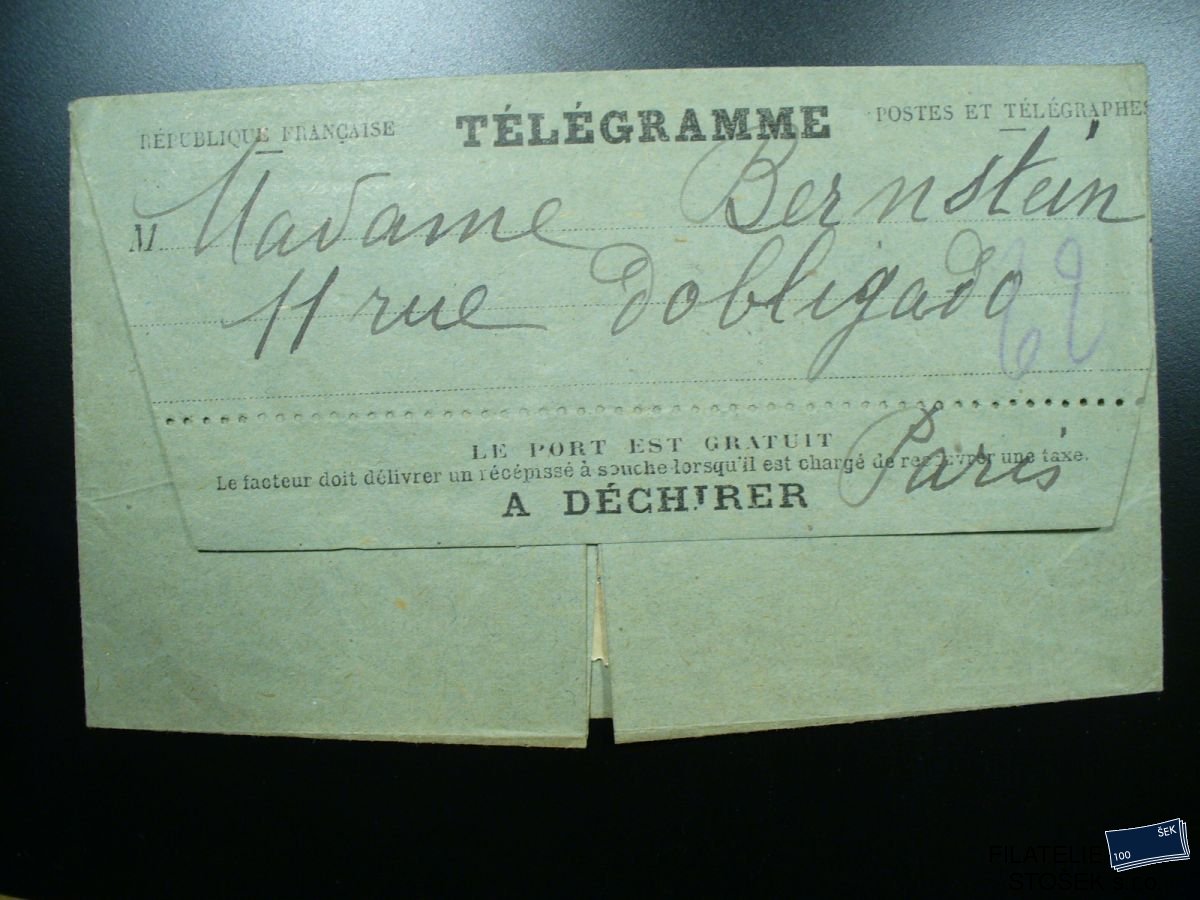 RÉPUBLIQUE FRANÇAISE
TÉLÉGRAMME
POSTES ET TÉLÉGRAPHES
M Madame Bernstein
11 rue Dobligado
62
LE PORT EST GRATUIT
Paris
Le facteur doit délivrer un récépissé à souche lorsqu'il est chargé de recouvrer une taxe.
A DÉCHIRER
100 ŠEK
FILATELIE
STOŠEK s.r.o.